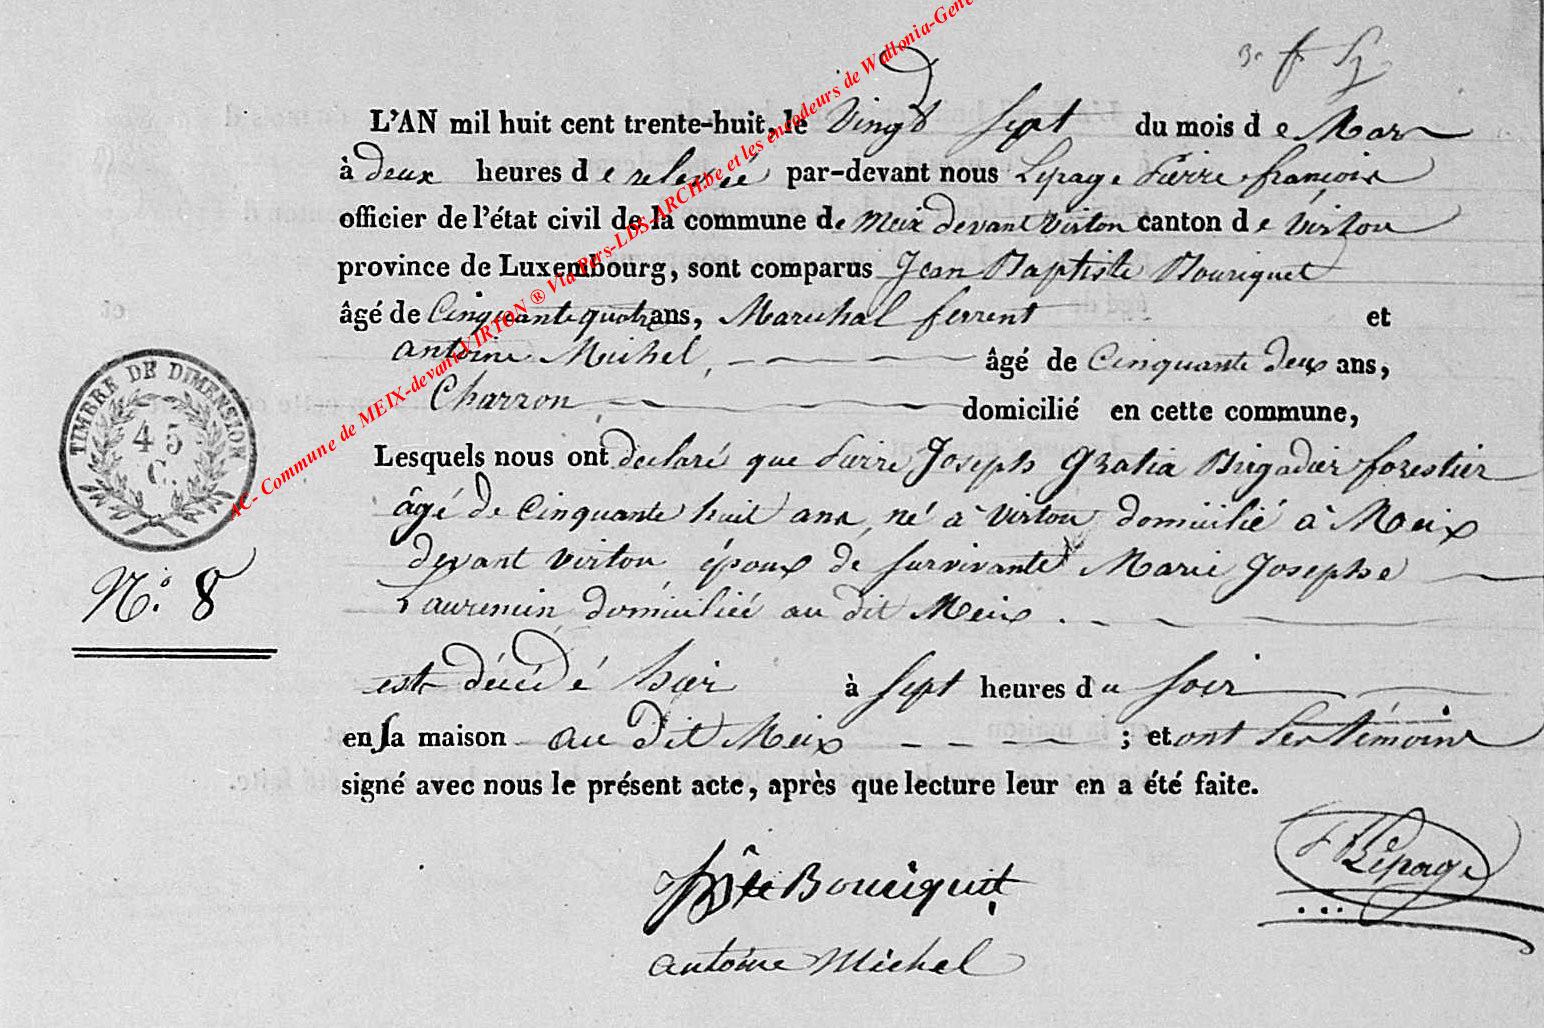 L'AN mil huit cent trente-huit, le Vingt Sept du mois de Mars
à deux heures de relevée par-devant nous Lepage Pierre françois
officier de l'état civil de la commune de Meix devant Virton canton de Virton
province de Luxembourg, sont comparus Jean Baptiste Bouriquet
âgé de Cinquante quatre ans, Marechal ferrent et
antoine Michel, âgé de Cinquante deux ans,
Charron, domicilié en cette commune,
Lesquels nous ont declaré que Pierre Joseph Gratia Brigadier forestier
âgé de Cinquante huit ans, né à Virton domicilié à Meix
devant Virton époux de survivante Marie Josephe
Laurencin, domiciliée au dit Meix.
est décédé hier à Sept heures du Soir
en sa maison au dit Meix ; et ont Les témoins
signé avec nous le présent acte, après que lecture leur en a été faite.
TIMBRE DE DIMENSION
45
C.
N° 8
Bouriquet
Lepage
antoine Michel
AC- Commune de MEIX-devant-VIRTON ® Via Pers-LDS-ARCH.be et les encodeurs de Wallonia-Gene